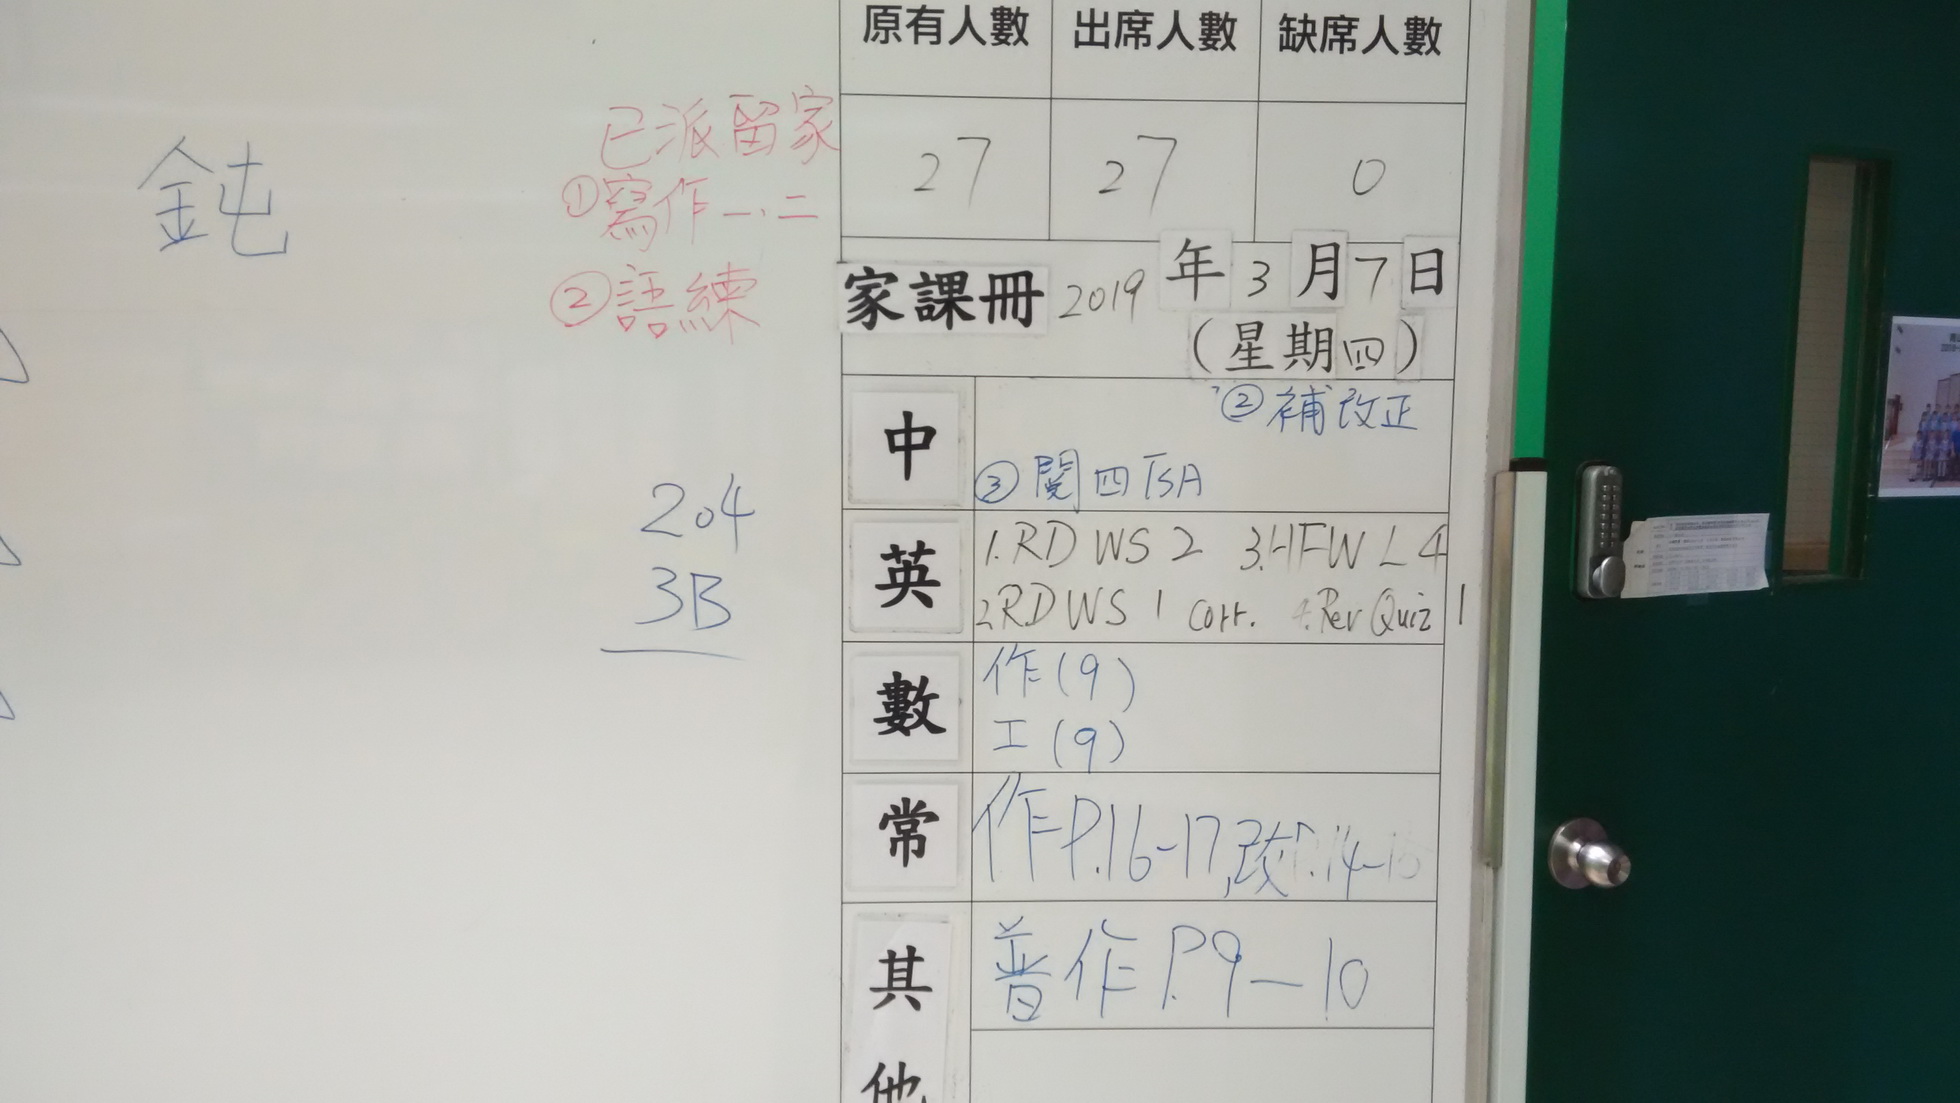 鈍
已派留家
①寫作一、二
②語練
204
3B
原有人數 出席人數 缺席人數
27 27 0
家課冊 2019年3月7日
(星期四)
中 ②補改正
③閱四TSA
英 1.RD WS 2 3.HFW L 4
2.RD WS 1 corr. 4.Rev Quiz 1
數 作(9)
工(9)
常 作P.16-17,改P.14-15
其他 普作P.9-10